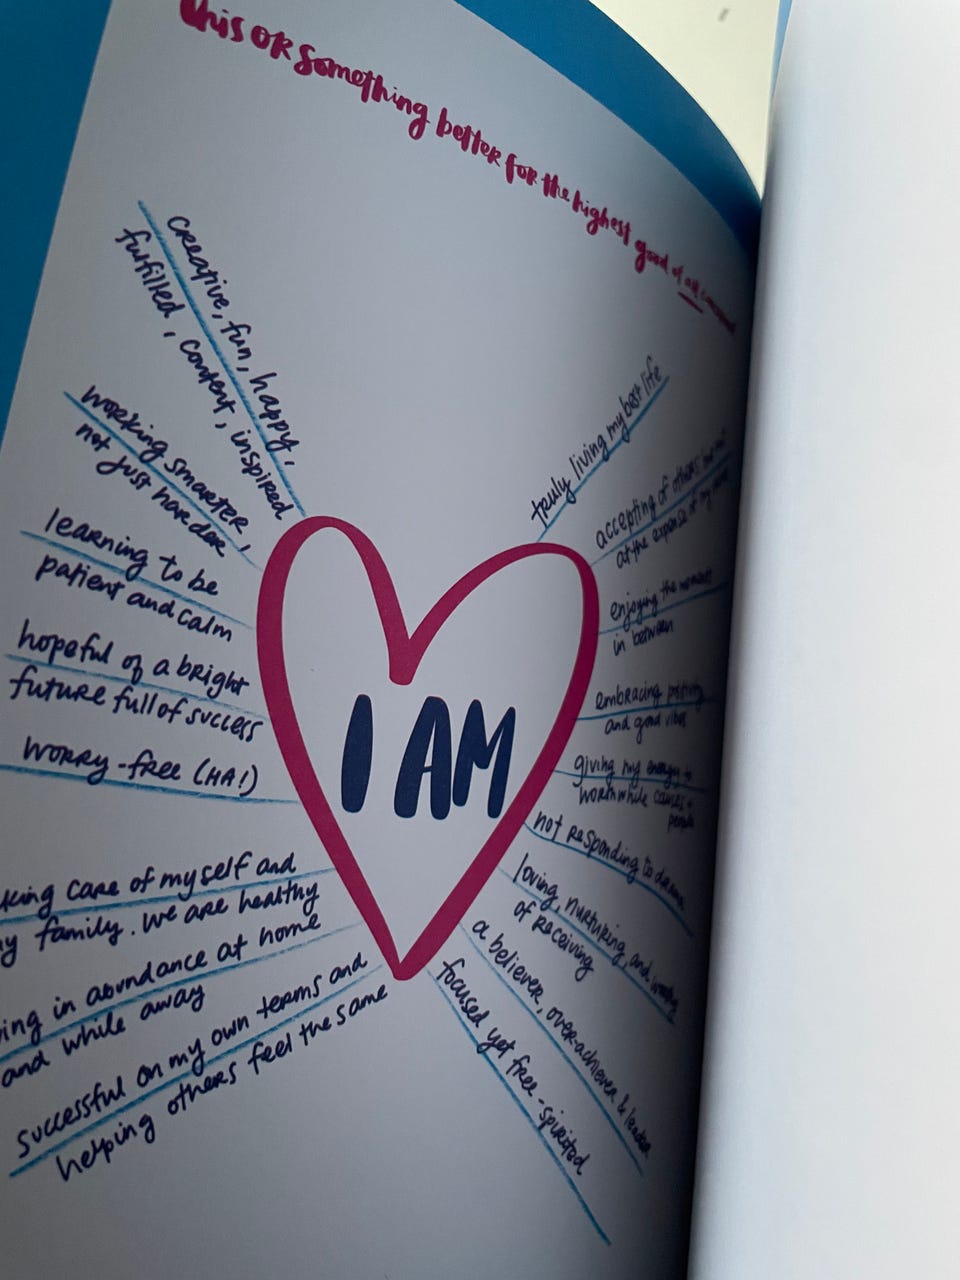 this or something better for the highest good of all concerned
creative, fun, happy,
fulfilled, content, inspired
working smarter,
not just harder
learning to be
patient and calm
hopeful of a bright
future full of success
worry-free (HA!)
care of myself and
family. we are healthy
in abundance at home
and while away
successful on my own terms and
helping others feel the same
I AM
truly living my best life
accepting of others but not
at the expense of my
enjoying the moments
in between
embracing positivity
and good vibes
giving my energy to
worthwhile causes +
people
not responding to drama
loving, nurturing, and worthy
of receiving
a believer, over-achiever & leader
focused yet free-spirited